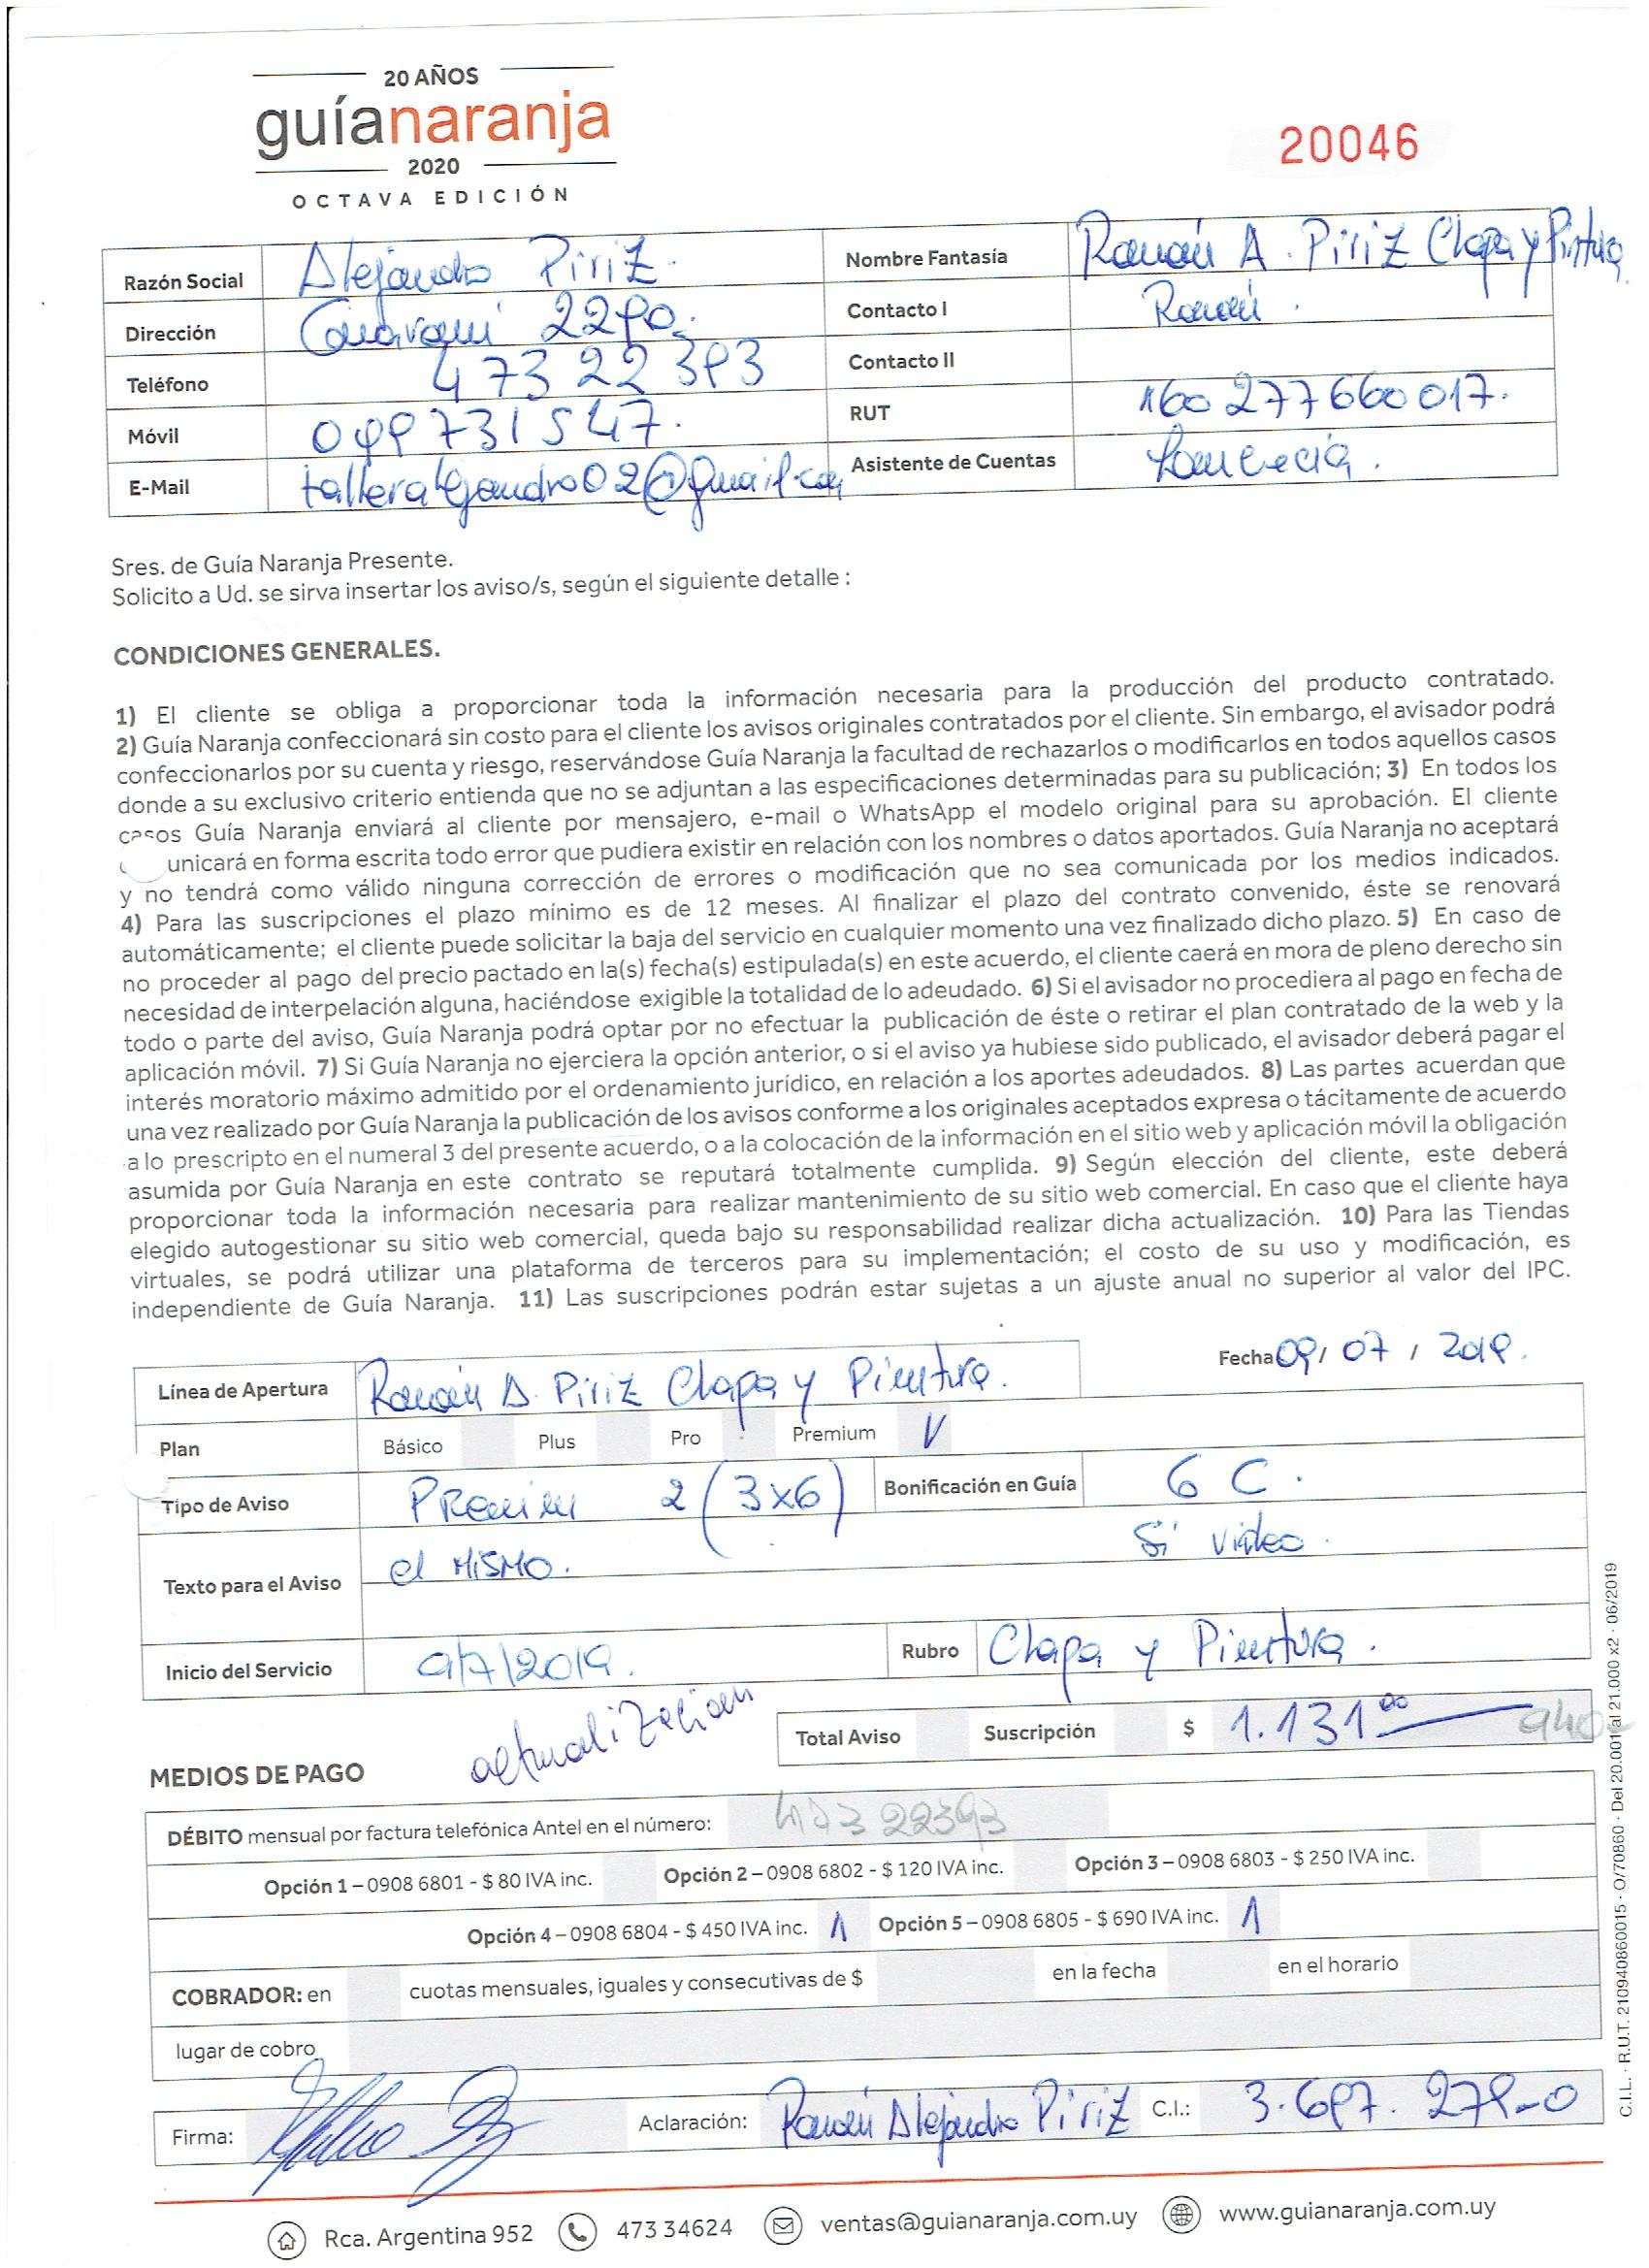 20 AÑOS
guíanaranja
2020
OCTAVA EDICIÓN
20046
Razón Social Alejandro Piriz. Nombre Fantasía Ramón A. Piriz Chapa y Pintura.
Dirección Guaraní 2290. Contacto I Ramón.
Teléfono 473 22 393 Contacto II
Móvil 099731547. RUT 160277660017.
E-Mail talleralejandro02@gmail.com Asistente de Cuentas
Sres. de Guía Naranja Presente.
Solicito a Ud. se sirva insertar los aviso/s, según el siguiente detalle :
CONDICIONES GENERALES.
1) El cliente se obliga a proporcionar toda la información necesaria para la producción del producto contratado.
2) Guía Naranja confeccionará sin costo para el cliente los avisos originales contratados por el cliente. Sin embargo, el avisador podrá
confeccionarlos por su cuenta y riesgo, reservándose Guía Naranja la facultad de rechazarlos o modificarlos en todos aquellos casos
donde a su exclusivo criterio entienda que no se adjuntan a las especificaciones determinadas para su publicación; 3) En todos los
casos Guía Naranja enviará al cliente por mensajero, e-mail o WhatsApp el modelo original para su aprobación. El cliente
unicará en forma escrita todo error que pudiera existir en relación con los nombres o datos aportados. Guía Naranja no aceptará
y no tendrá como válido ninguna corrección de errores o modificación que no sea comunicada por los medios indicados.
4) Para las suscripciones el plazo mínimo es de 12 meses. Al finalizar el plazo del contrato convenido, éste se renovará
automáticamente; el cliente puede solicitar la baja del servicio en cualquier momento una vez finalizado dicho plazo. 5) En caso de
no proceder al pago del precio pactado en la(s) fecha(s) estipulada(s) en este acuerdo, el cliente caerá en mora de pleno derecho sin
necesidad de interpelación alguna, haciéndose exigible la totalidad de lo adeudado. 6) Si el avisador no procediera al pago en fecha de
todo o parte del aviso, Guía Naranja podrá optar por no efectuar la publicación de éste o retirar el plan contratado de la web y la
aplicación móvil. 7) Si Guía Naranja no ejerciera la opción anterior, o si el aviso ya hubiese sido publicado, el avisador deberá pagar el
interés moratorio máximo admitido por el ordenamiento jurídico, en relación a los aportes adeudados. 8) Las partes acuerdan que
una vez realizado por Guía Naranja la publicación de los avisos conforme a los originales aceptados expresa o tácitamente de acuerdo
a lo prescripto en el numeral 3 del presente acuerdo, o a la colocación de la información en el sitio web y aplicación móvil la obligación
asumida por Guía Naranja en este contrato se reputará totalmente cumplida. 9) Según elección del cliente, este deberá
proporcionar toda la información necesaria para realizar mantenimiento de su sitio web comercial. En caso que el cliente haya
elegido autogestionar su sitio web comercial, queda bajo su responsabilidad realizar dicha actualización. 10) Para las Tiendas
virtuales, se podrá utilizar una plataforma de terceros para su implementación; el costo de su uso y modificación, es
independiente de Guía Naranja. 11) Las suscripciones podrán estar sujetas a un ajuste anual no superior al valor del IPC.
Fecha 09 / 07 / 2019.
Línea de Apertura Ramón A. Piriz Chapa y Pintura.
Plan Básico Plus Pro Premium V
Tipo de Aviso Premium 2 (3x6) Bonificación en Guía 6 C.
Si video.
Texto para el Aviso el MISMO.
Inicio del Servicio 9/7/2019. Rubro Chapa y Pintura.
actualización
Total Aviso Suscripción $ 1.131 00 940
MEDIOS DE PAGO
DÉBITO mensual por factura telefónica Antel en el número: 47322393
Opción 1 – 0908 6801 - $ 80 IVA inc. Opción 2 – 0908 6802 - $ 120 IVA inc. Opción 3 – 0908 6803 - $ 250 IVA inc.
Opción 4 – 0908 6804 - $ 450 IVA inc. 1 Opción 5 – 0908 6805 - $ 690 IVA inc. 1
COBRADOR: en cuotas mensuales, iguales y consecutivas de $ en la fecha en el horario
lugar de cobro
Firma: Aclaración: Ramón Alejandro Piriz C.I.: 3.697.279-0
Rca. Argentina 952 473 34624 ventas@guianaranja.com.uy www.guianaranja.com.uy
C.I.L. · R.U.T. 210940860015 · O/70860 · Del 20.001 al 21.000 x2 · 06/2019